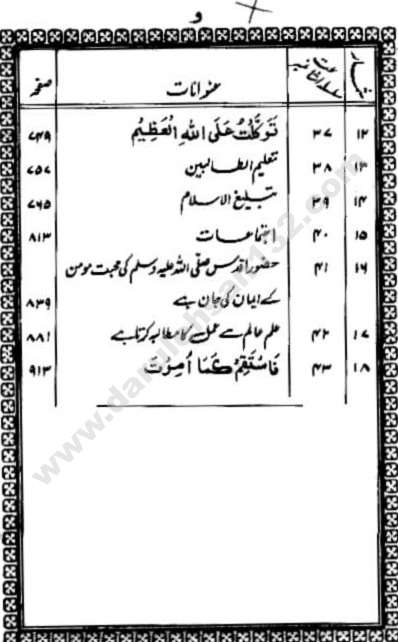 و
شمار سلسلہ اشاعت نمبر عنوانات صفحہ
۱۲ ۳۷ تَوَكَّلْتُ عَلَى اللهِ الْعَظِيْمُ ۷۴۹
۱۳ ۳۸ تعلیم الطالبین ۷۵۷
۱۴ ۳۹ تبلیغ الاسلام ۷۶۵
۱۵ ۴۰ اجتماعات ۸۱۳
۱۶ ۴۱ حضور اقدس صلی اللہ علیہ وسلم کی محبت مومن
کے ایمان کی جان ہے ۸۳۹
۱۷ ۴۲ علم عالم سے عمل کا مطالبہ کرتا ہے ۸۸۱
۱۸ ۴۳ فَاسْتَقِمْ كَمَا اُمِرْتَ ۹۱۳